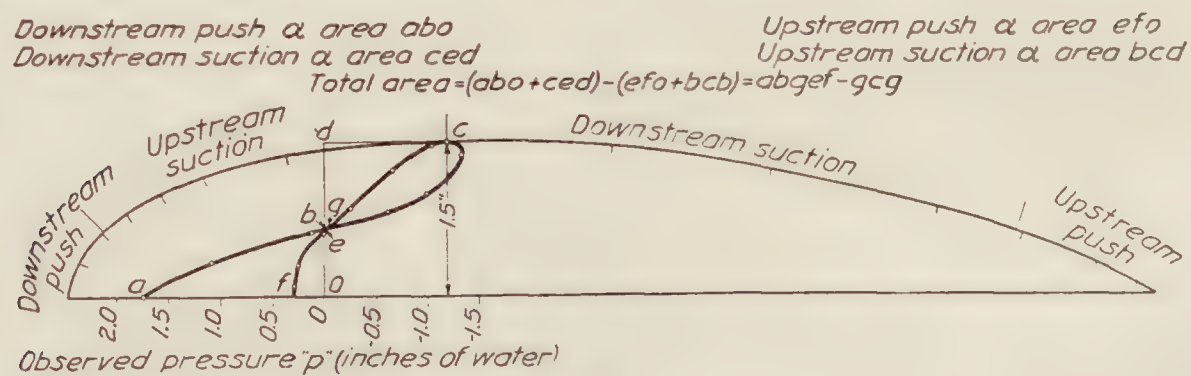 Downstream push α area abo
Downstream suction α area ced
Upstream push α area efo
Upstream suction α area bcd
Total area=(abo+ced)-(efo+bcb)=abgef-gcg
Downstream push
Upstream suction
Downstream suction
Upstream push
d
c
b
g
e
a
f
0
1.5"
2.0
1.5
1.0
0.5
0
-0.5
-1.0
-1.5
Observed pressure "p" (inches of water)